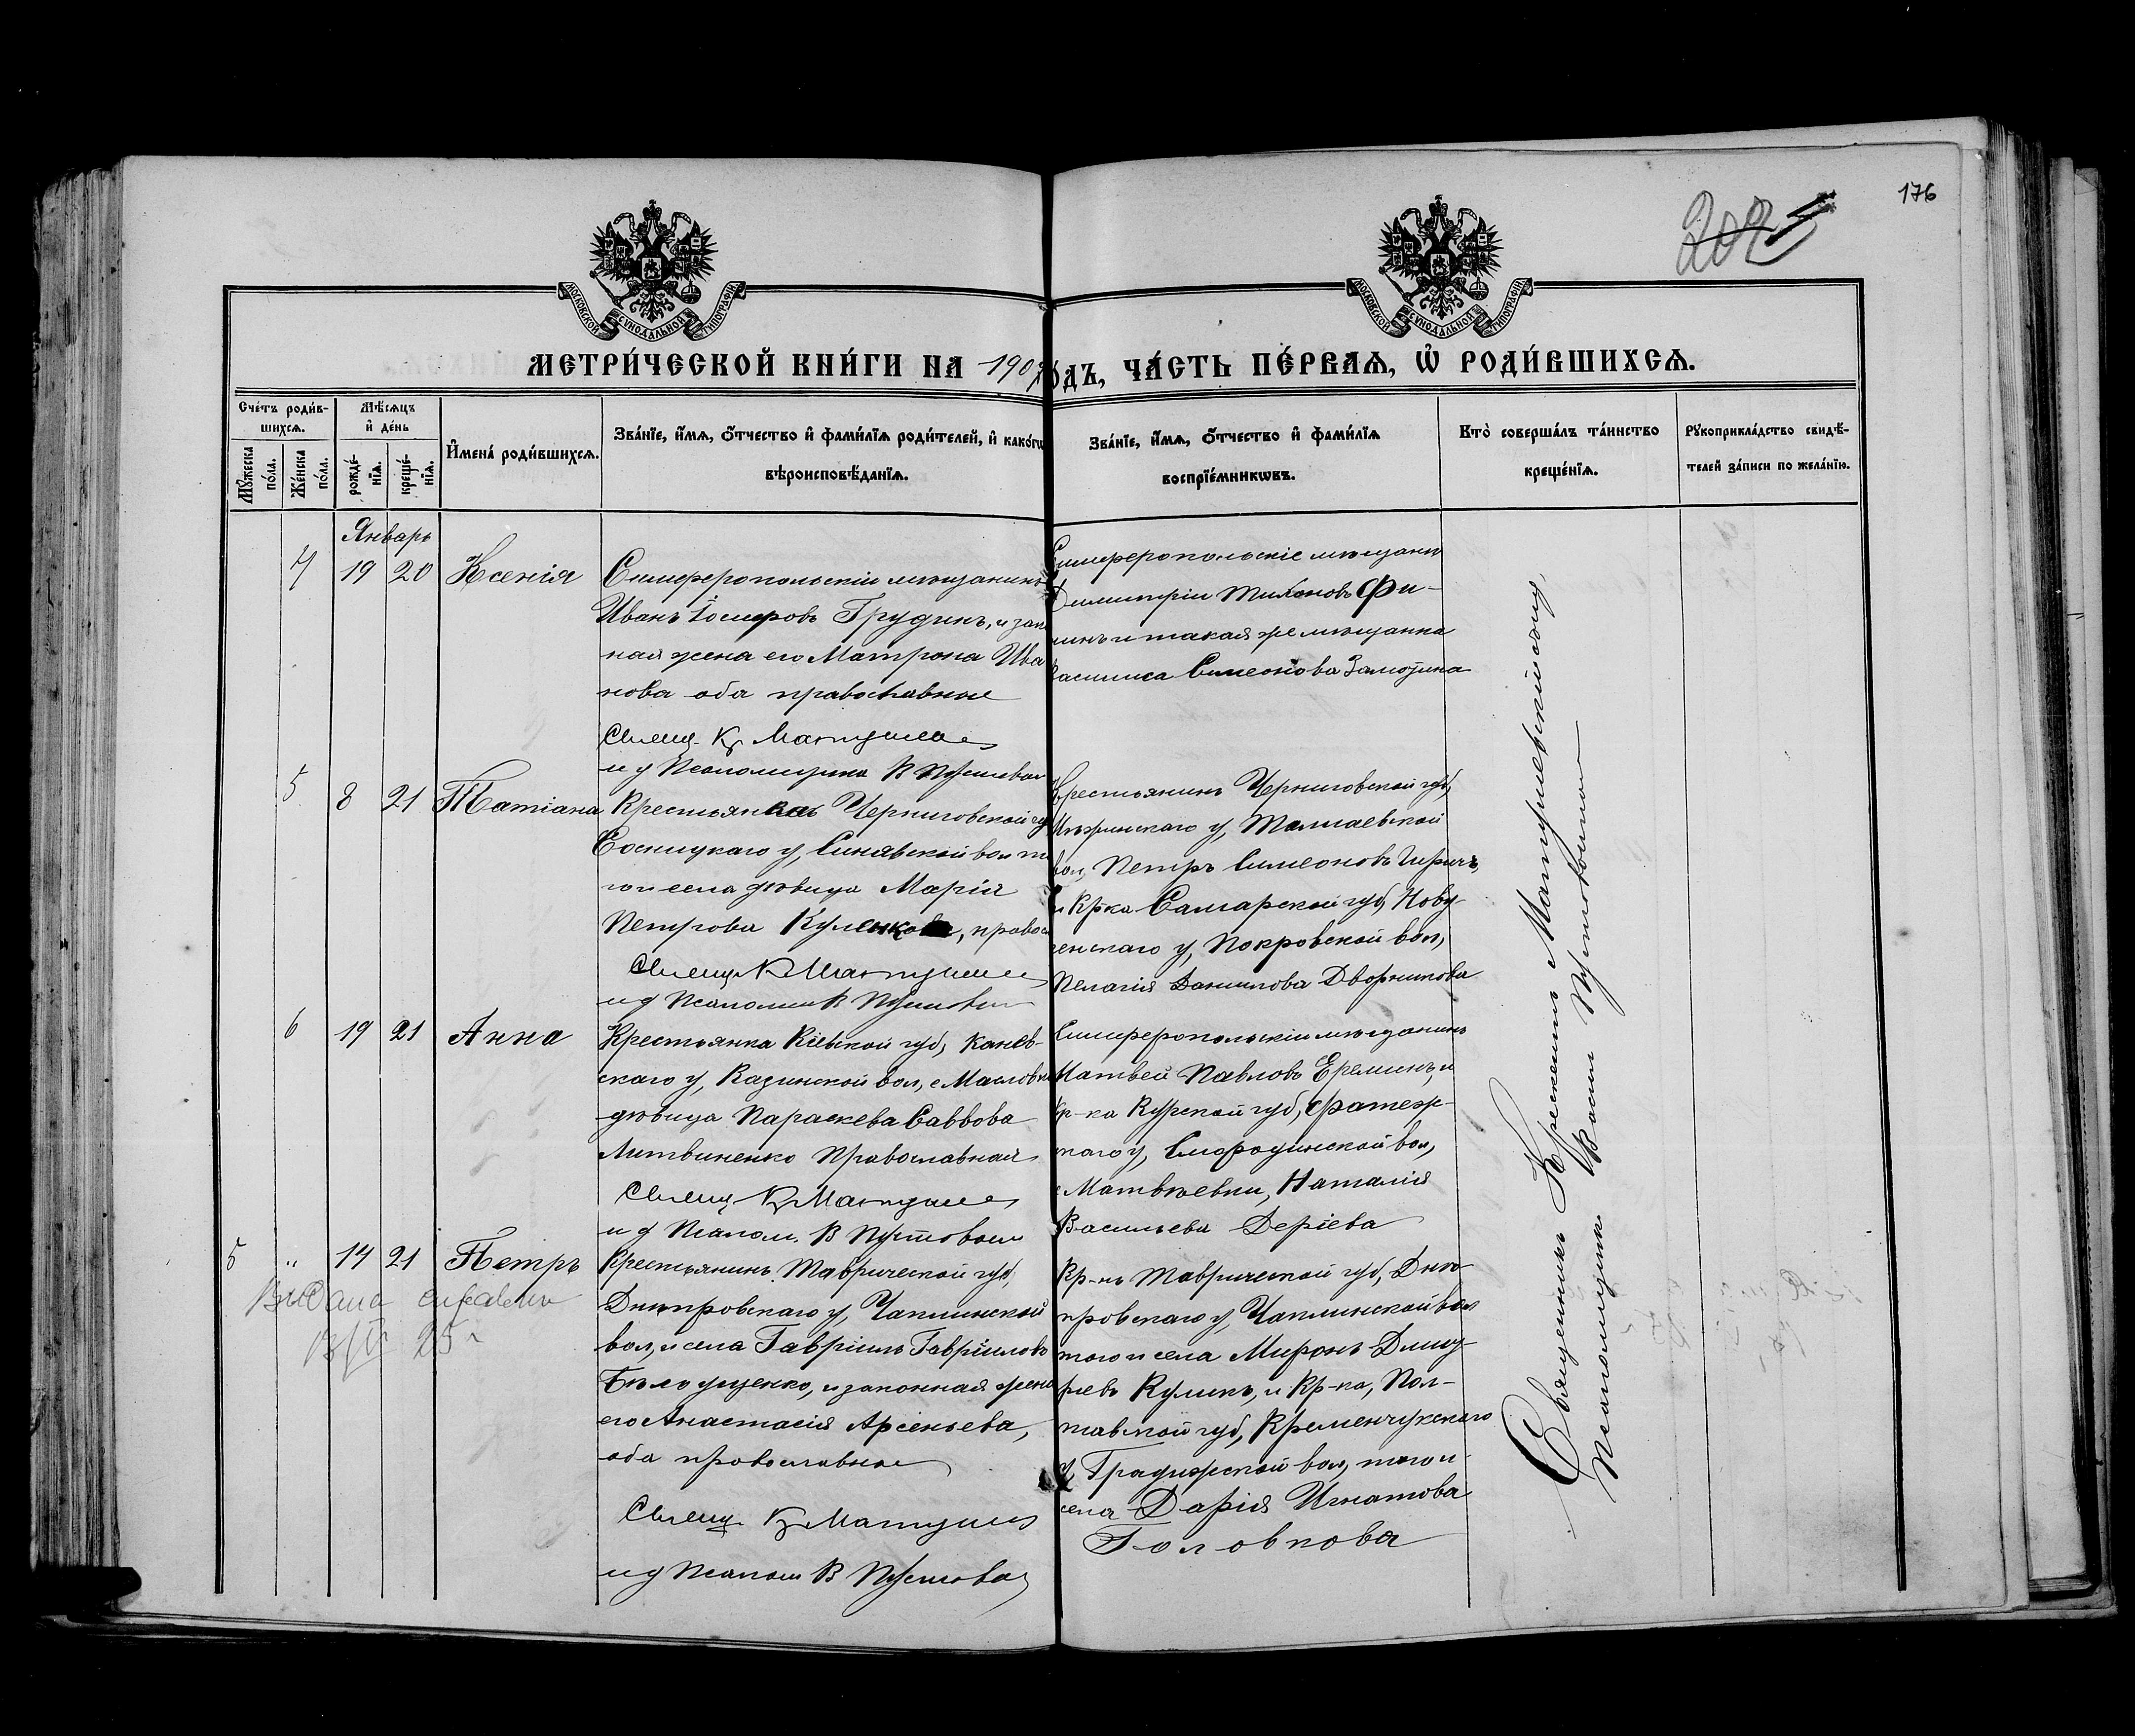 176
МОСКОВСКОЙ СУНОДАЛЬНОЙ ТИПОГРАФІИ
МОСКОВСКОЙ СУНОДАЛЬНОЙ ТИПОГРАФІИ
МЕТРИ́ЧЕСКОЙ КНИ́ГИ НА 190 ДЪ, ЧА́СТЬ ПЕ́РВАѦ, Ѡ҆ РОДИ́ВШИХСѦ.
Сче́тъ роди́в-
шихсѧ.
Мꙋ́жеска по́ла.
Же́нска по́ла.
Мѣ́сѧцъ
и҆ де́нь
рожде́-
нїѧ.
креще́-
нїѧ.
И҆мена̀ роди́вшихсѧ.
Зва́нїе, и҆́мѧ, ѻ҆́тчество и҆ фами́лїѧ роди́телей, и҆ како́гѡ
вѣроисповѣ́данїѧ.
Зва́нїе, и҆́мѧ, ѻ҆́тчество и҆ фами́лїѧ
воспрїе́мникѡвъ.
Кто̀ соверша́лъ та́инство
креще́нїѧ.
Рꙋкоприкла́дство свидѣ́-
телей за́писи по жела́нїю.
Январь
19 20 Ксенія
Симферопольскій мѣщанинъ
Иванъ Іосифовъ Грудинъ, и зак
ная жена его Матрона Ива
нова оба православные
Свящ. К. Матушев
и д Псаломщика В Пустовой
Симферопольскіе мѣщане
Димитрій Тихоновъ Фи-
нинъ и такая же мѣщанка
Василиса Симеонова
5 8 21 Татіана
Крестьянка Черниговской гу
Сосницкаго у, Синявской вол т
го и села дѣвица Марія
Петрова , правос
Свящ К Матушев
и д Псалом В Пустовой
Крестьянинъ Черниговской губ,
Нѣжинскаго у, Талалаевской
вол, Петръ Симеоновъ
и Кр-ка Самарской губ, Новоу-
зенскаго у, Покровской вол,
Пелагія Данилова Дворникова
6 19 21 Анна
Крестьянка Кіевской губ, Канев-
скаго у, Казинской вол, с Масловк
дѣвица Параскева Саввова
Литвиненко Православная
Свящ К Матушев
и д Псалом. В Пустовой
Симферопольскій мѣщанинъ
Матвей Павловъ Ереминъ, и
Кр-ка Курской губ, Фатеж-
скаго у, Смородинской вол,
с Матвѣевки, Наталія
Васильева Деріева
5 " 14 21 Петръ
Видана
25 г
Крестьянинъ Таврической губ,
Днѣпровскаго у, Чаплинской
вол, и села Гавріилъ Гавріиловъ
Бѣлоущенко, и законная жена
его Анастасія Арсеньева,
оба православные
Свящ К Матушев
и д Псалом В Пустовой
Кр-нъ Таврической губ, Днѣ-
провскаго у, Чаплинской вол
того и села Миронъ Дмит-
ріевъ Куликъ, и Кр-ка, Пол-
тавской губ, Кременчугскаго
у, Градижской вол, того и
села Дарія Игнатова
Головкова
Священникъ Крискентъ Матушевскій
Псаломщикъ Пустовойтъ